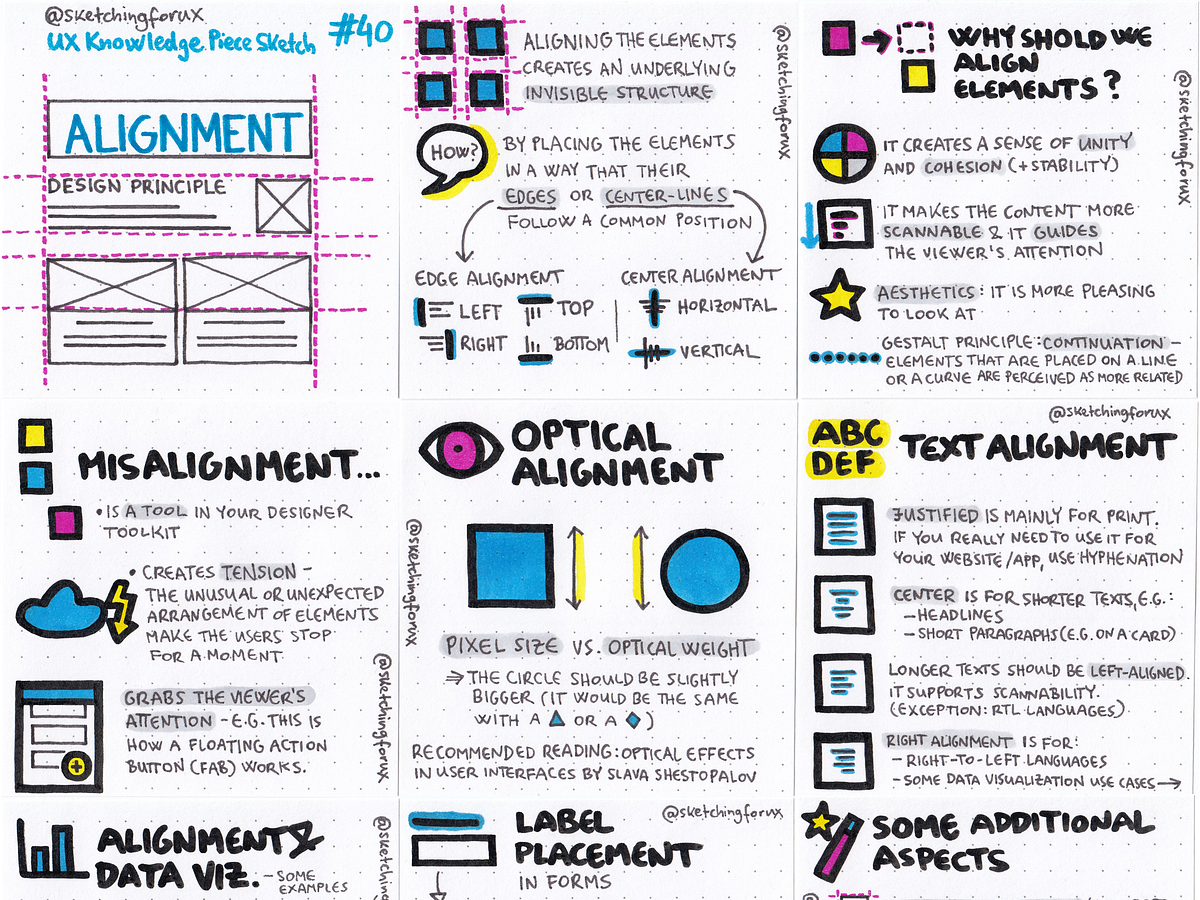 @sketchingforux
UX Knowledge Piece Sketch #40
ALIGNMENT
DESIGN PRINCIPLE
ALIGNING THE ELEMENTS
CREATES AN UNDERLYING
INVISIBLE STRUCTURE
@sketchingforux
HOW?
BY PLACING THE ELEMENTS
IN A WAY THAT THEIR
EDGES OR CENTER-LINES
FOLLOW A COMMON POSITION
EDGE ALIGNMENT
LEFT
TOP
RIGHT
BOTTOM
CENTER ALIGNMENT
HORIZONTAL
VERTICAL
WHY SHOLD WE
ALIGN
ELEMENTS?
@sketchingforux
IT CREATES A SENSE OF UNITY
AND COHESION (+STABILITY)
IT MAKES THE CONTENT MORE
SCANNABLE & IT GUIDES
THE VIEWER'S ATTENTION
AESTHETICS: IT IS MORE PLEASING
TO LOOK AT
GESTALT PRINCIPLE: CONTINUATION –
ELEMENTS THAT ARE PLACED ON A LINE
OR A CURVE ARE PERCEIVED AS MORE RELATED
MISALIGNMENT...
• IS A TOOL IN YOUR DESIGNER
TOOLKIT
• CREATES TENSION –
THE UNUSUAL OR UNEXPECTED
ARRANGEMENT OF ELEMENTS
MAKE THE USERS STOP
FOR A MOMENT.
GRABS THE VIEWER'S
ATTENTION – E.G. THIS IS
HOW A FLOATING ACTION
BUTTON (FAB) WORKS.
@sketchingforux
OPTICAL
ALIGNMENT
@sketchingforux
PIXEL SIZE VS. OPTICAL WEIGHT
⇒ THE CIRCLE SHOULD BE SLIGHTLY
BIGGER (IT WOULD BE THE SAME
WITH A ▲ OR A ◆)
RECOMMENDED READING: OPTICAL EFFECTS
IN USER INTERFACES BY SLAVA SHESTOPALOV
@sketchingforux
ABC
DEF
TEXT ALIGNMENT
JUSTIFIED IS MAINLY FOR PRINT.
IF YOU REALLY NEED TO USE IT FOR
YOUR WEBSITE/APP, USE HYPHENATION
CENTER IS FOR SHORTER TEXTS, E.G.:
– HEADLINES
– SHORT PARAGRAPHS (E.G. ON A CARD)
LONGER TEXTS SHOULD BE LEFT-ALIGNED.
IT SUPPORTS SCANNABILITY.
(EXCEPTION: RTL LANGUAGES)
RIGHT ALIGNMENT IS FOR:
– RIGHT-TO-LEFT LANGUAGES
– SOME DATA VISUALIZATION USE CASES →
ALIGNMENT &
DATA VIZ. – SOME
EXAMPLES
@sketchingforux
LABEL
PLACEMENT
IN FORMS
@sketchingforux
SOME ADDITIONAL
ASPECTS